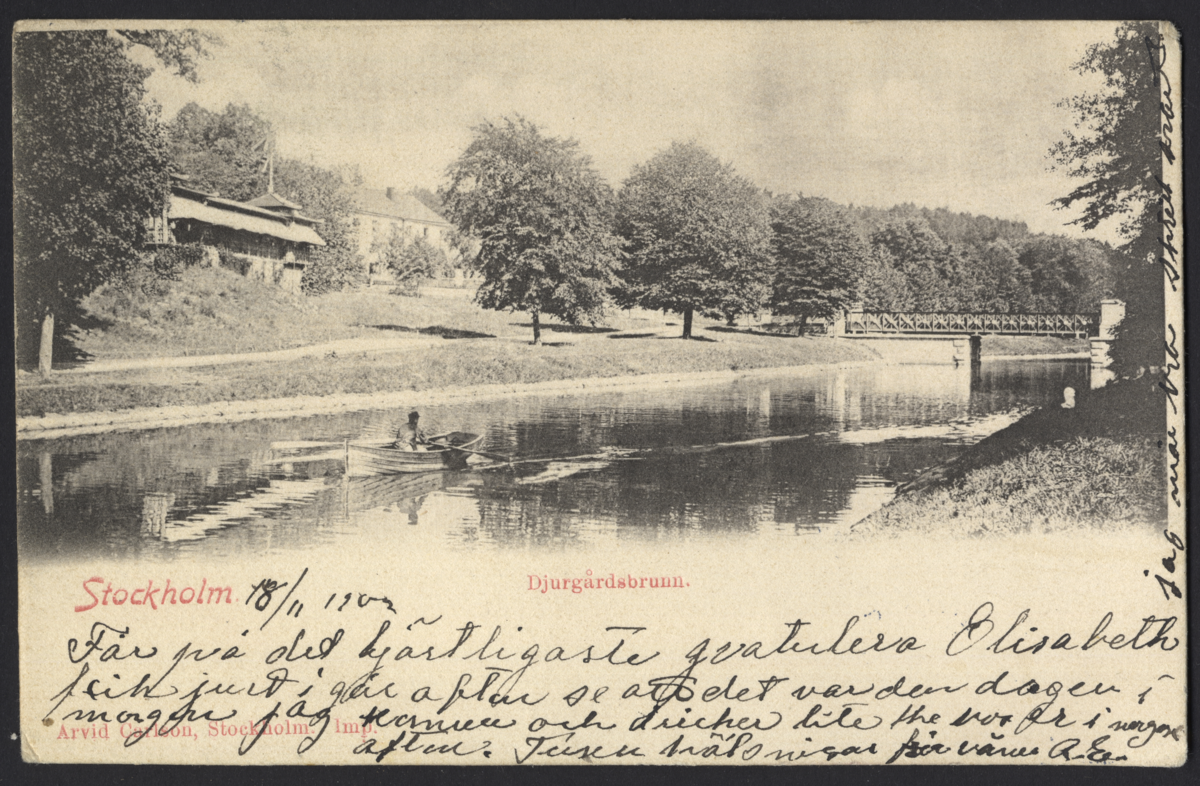 Stockholm. 18/11 1902
Djurgårdsbrunn.
Får på det hjärtligaste gratulera Elisabeth
fick just i går aften se att det var den dagen i
morgon jag kommer och dricker lite the hos er i morgon
aften. Tusen hälsningar från vännen A.E.
Arvid Carlson, Stockholm. Imp.
jag mår bra